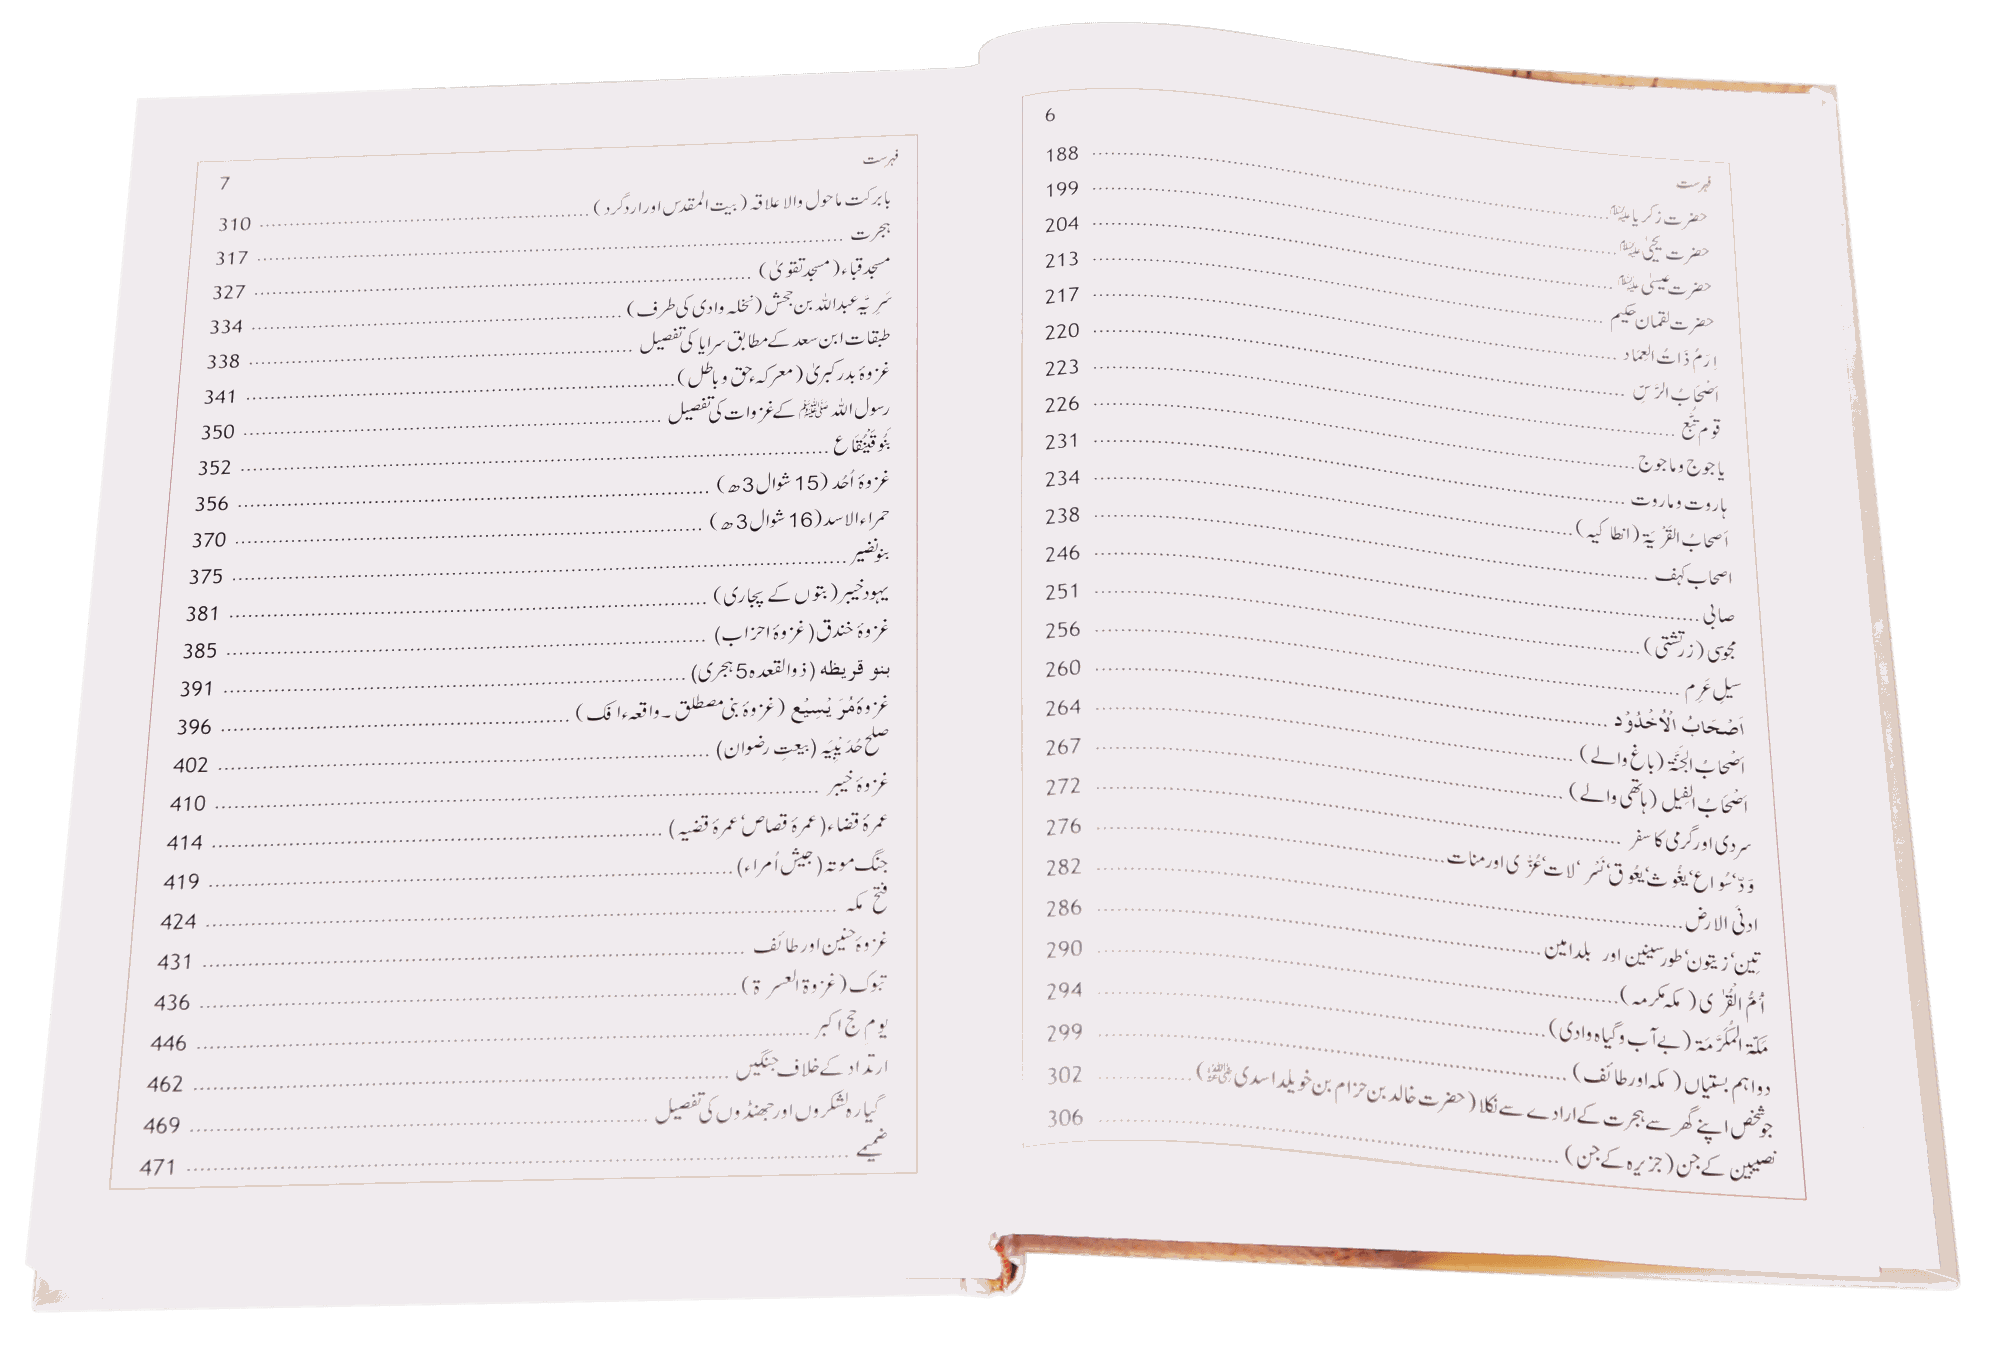 6
فہرست
حضرت زکریا علیہ السلام ........ 188
حضرت یحییٰ علیہ السلام ........ 199
حضرت عیسیٰ علیہ السلام ........ 204
حضرت لقمان حکیم ........ 213
اِرَمُ ذَاتُ العِمَاد ........ 217
اَصْحَابُ الرَّسِّ ........ 220
قوم تُبَّع ........ 223
یاجوج وماجوج ........ 226
ہاروت وماروت ........ 231
اَصحابُ القَرْیَۃ (انطاکیہ) ........ 234
اصحاب کہف ........ 238
صابی ........ 246
مجوسی (زرتشتی) ........ 251
سیلِ عَرِم ........ 256
اَصْحَابُ الْاُخْدُوْد ........ 260
اَصْحَابُ الجَنَّۃ (باغ والے) ........ 264
اَصْحَابُ الْفِیل (ہاتھی والے) ........ 267
سردی اور گرمی کا سفر ........ 272
وَدّ، سُواع، یغُوث، یعُوق، نَسْر، لات، عُزّٰی اور منات ........ 276
ادنَی الارض ........ 282
تِین، زیتون، طور سینین اور بلد امین ........ 286
اُمُّ الْقُرٰی (مکہ مکرمہ) ........ 290
مَکَّۃ المُکَرَّمَۃ (بے آب و گیاہ وادی) ........ 294
دو اہم بستیاں (مکہ اور طائف) ........ 299
جو شخص اپنے گھر سے ہجرت کے ارادے سے نکلا (حضرت خالد بن حزام بن خویلد اسدی رضی اللہ عنہ) ........ 302
نصیبین کے جن (جزیرہ کے جن) ........ 306
فہرست
7
بابرکت ماحول والا علاقہ (بیت المقدس اور اردگرد) ........ 310
ہجرت ........ 317
مسجد قباء (مسجد تقویٰ) ........ 327
سَرِیّہ عبداللہ بن جحش (نخلہ وادی کی طرف) ........ 334
طبقات ابن سعد کے مطابق سرایا کی تفصیل ........ 338
غزوۂ بدر کبریٰ (معرکہء حق و باطل) ........ 341
رسول اللہ ﷺ کے غزوات کی تفصیل ........ 350
بَنُو قَیْنُقَاع ........ 352
غزوۂ اُحُد (15 شوال 3ھ) ........ 356
حمراء الاسد (16 شوال 3ھ) ........ 370
بنو نضیر ........ 375
یہود خیبر (بتوں کے پجاری) ........ 381
غزوۂ خندق (غزوۂ احزاب) ........ 385
بنو قریظہ (ذوالقعدہ 5 ہجری) ........ 391
غزوۂ مُرَیْسِیْع (غزوۂ بنی مصطلق ۔ واقعہء افک) ........ 396
صلح حُدَیْبِیَہ (بیعتِ رضوان) ........ 402
غزوۂ خیبر ........ 410
عمرۂ قضاء (عمرۂ قصاص، عمرۂ قضیہ) ........ 414
جنگ موتہ (جیش اُمراء) ........ 419
فتح مکہ ........ 424
غزوۂ حنین اور طائف ........ 431
تبوک (غزوۃ العسرۃ) ........ 436
یوم حج اکبر ........ 446
ارتداد کے خلاف جنگیں ........ 462
گیارہ لشکروں اور جھنڈوں کی تفصیل ........ 469
ضمیمے ........ 471